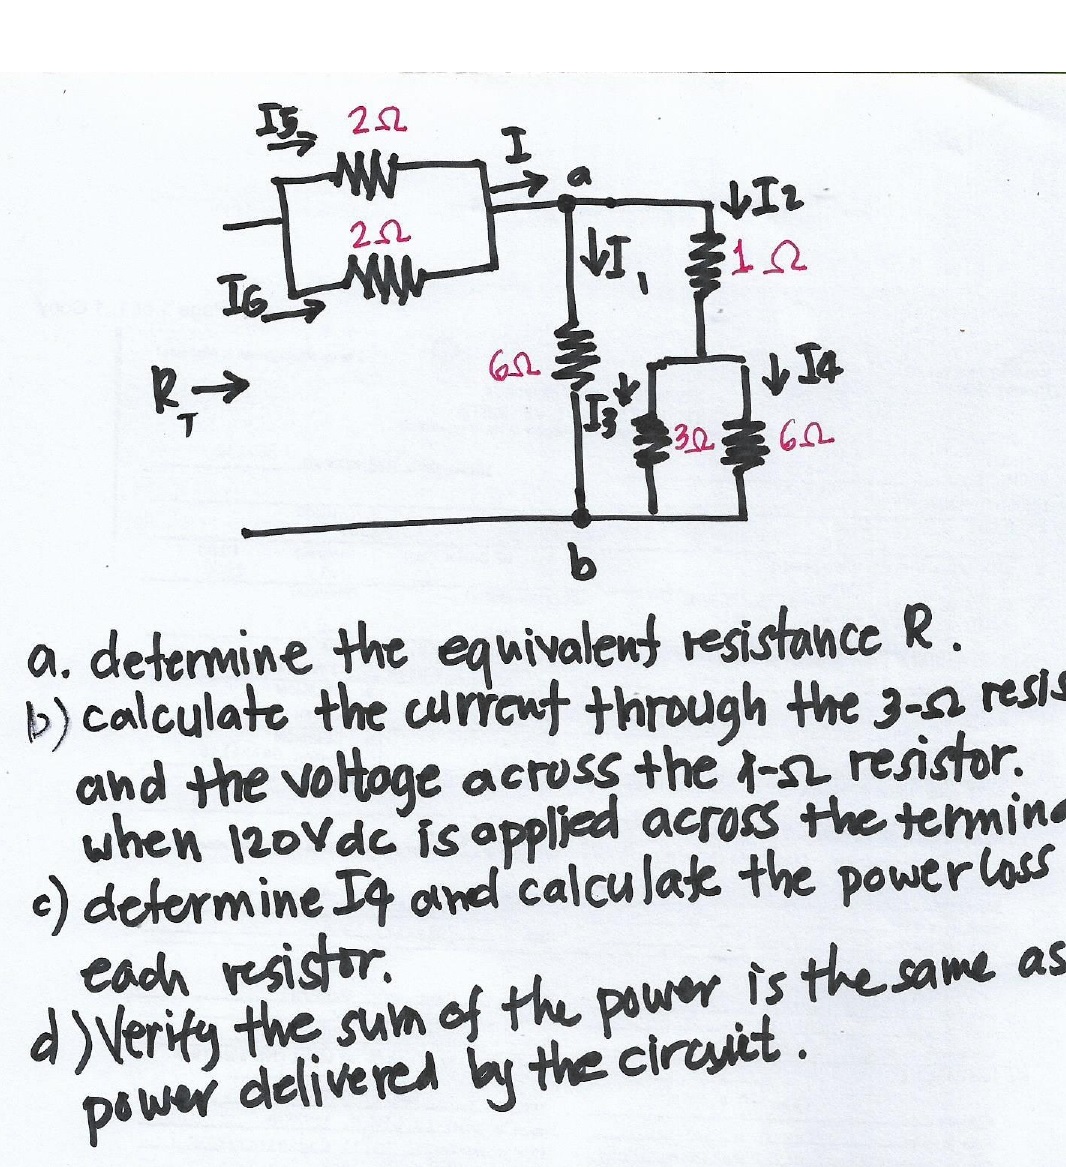 I5 2Ω
I
a
I2
2Ω
I1
1Ω
I6
6Ω
I4
RT
I3
3Ω
6Ω
b
a. determine the equivalent resistance R.
b) calculate the current through the 3-Ω resis
and the voltage across the 1-Ω resistor.
when 120Vdc is applied across the termina
c) determine I4 and calculate the power loss
each resistor.
d) Verify the sum of the power is the same as
power delivered by the circuit.